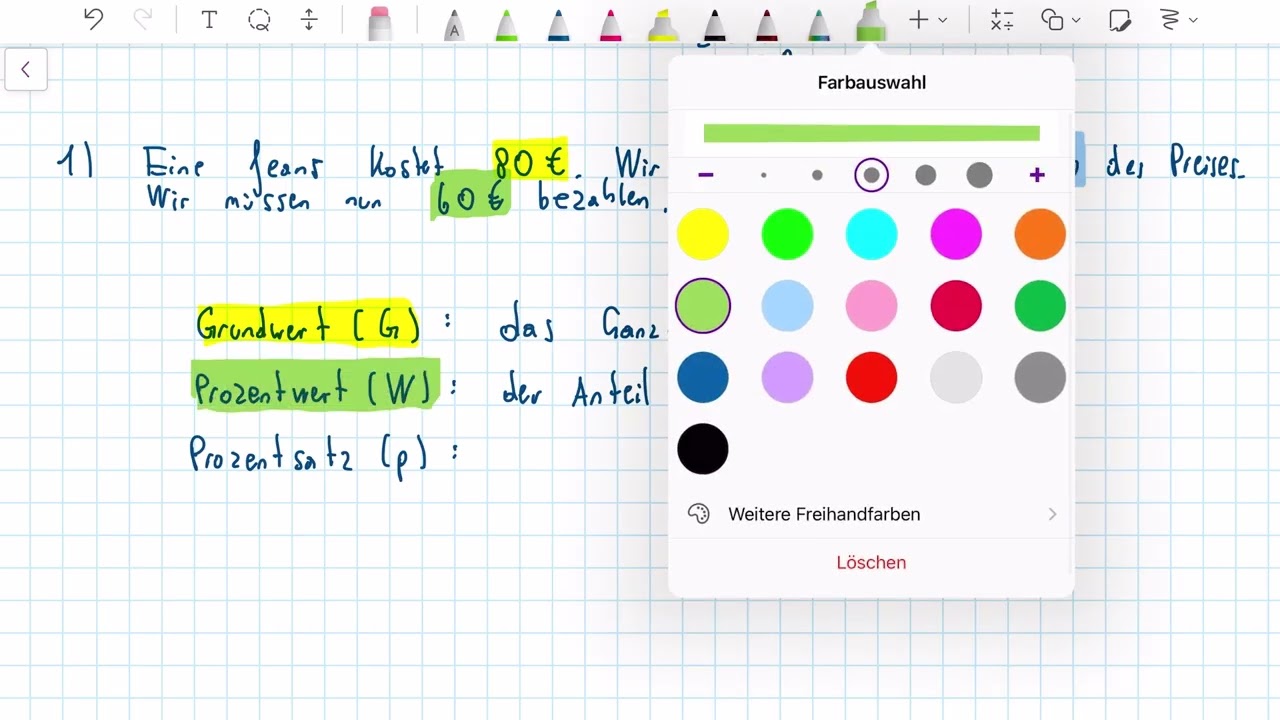 T
A
Farbauswahl
1) Eine Jeans kostet 80 €. Wir des Preises.
Wir müssen nun 60 € bezahlen.
Grundwert (G) : das Ganz
Prozentwert (W) : der Anteil
Prozentsatz (p) :
Weitere Freihandfarben
Löschen